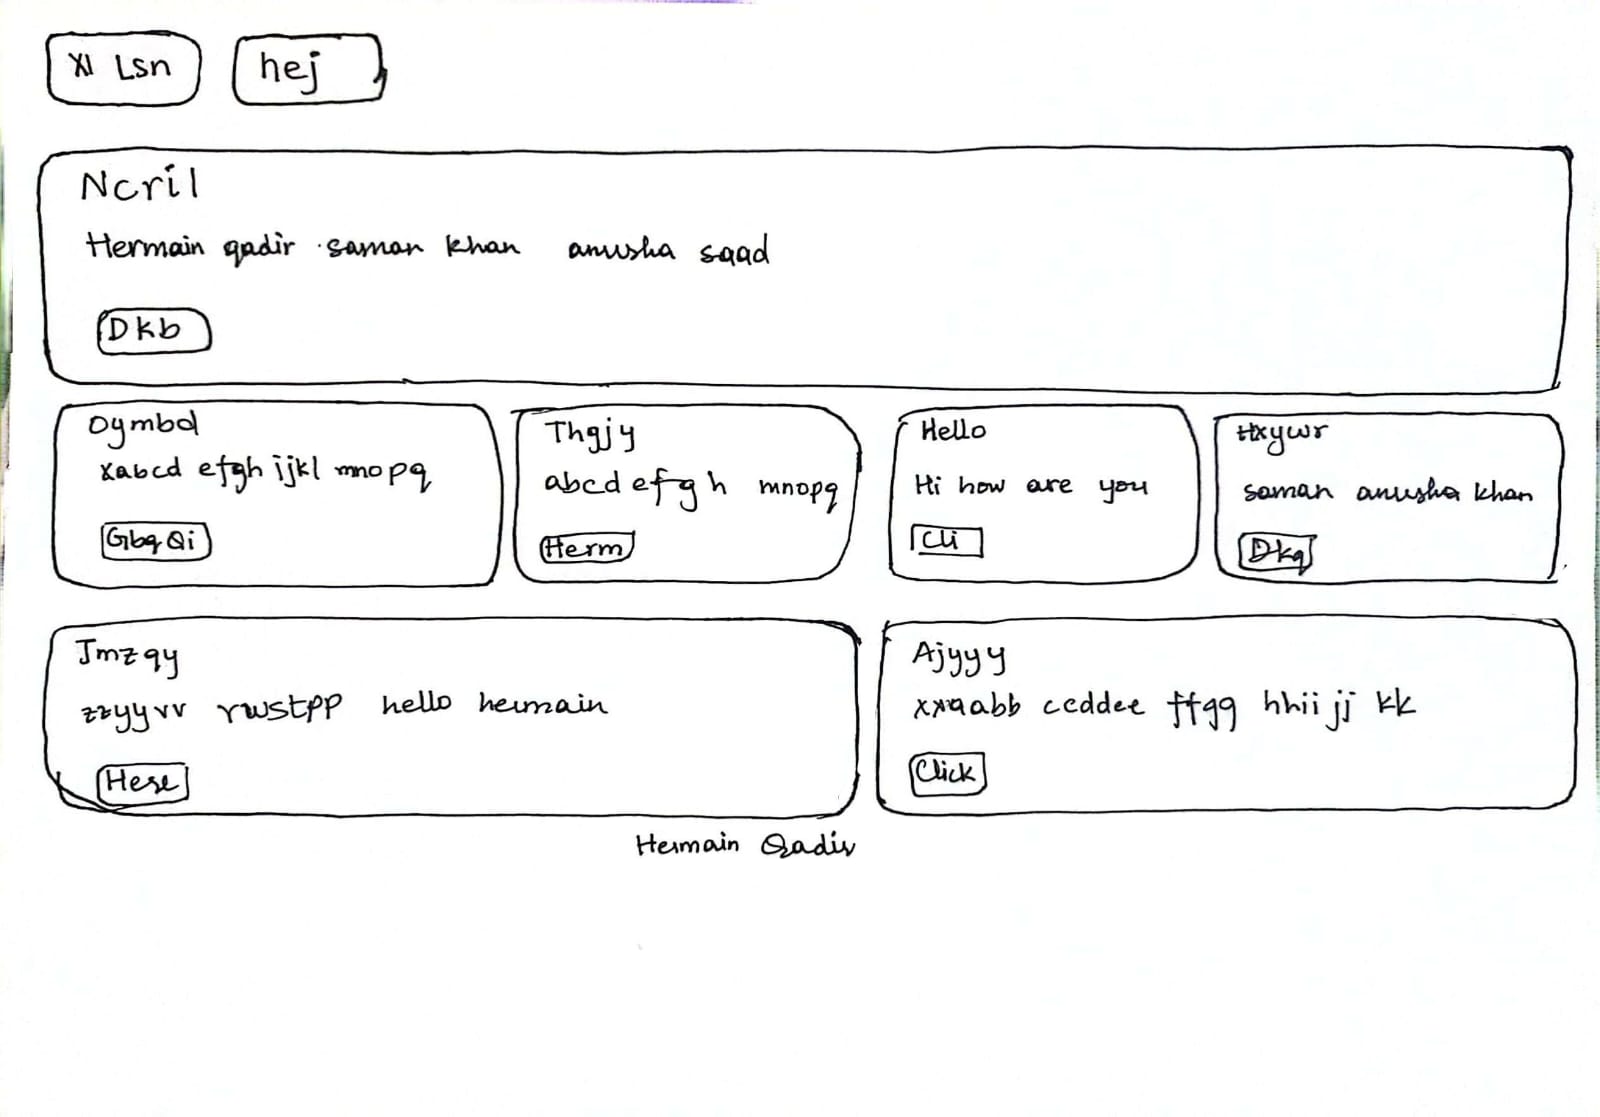 XI Lsn
hej
Ncril
Hermain qadir saman khan anusha saad
Dkb
Oymbd
xabcd efgh ijkl mnopq
Gbq Qi
Thgjy
abcd efgh mnopq
Herm
Hello
Hi how are you
Cli
Hxywr
saman anusha khan
Dkq
Jmzqy
zzyyvv rwstpp hello hermain
Here
Ajyyy
xxqabb ccddee ffgg hhii jj kk
Click
Hermain Qadir